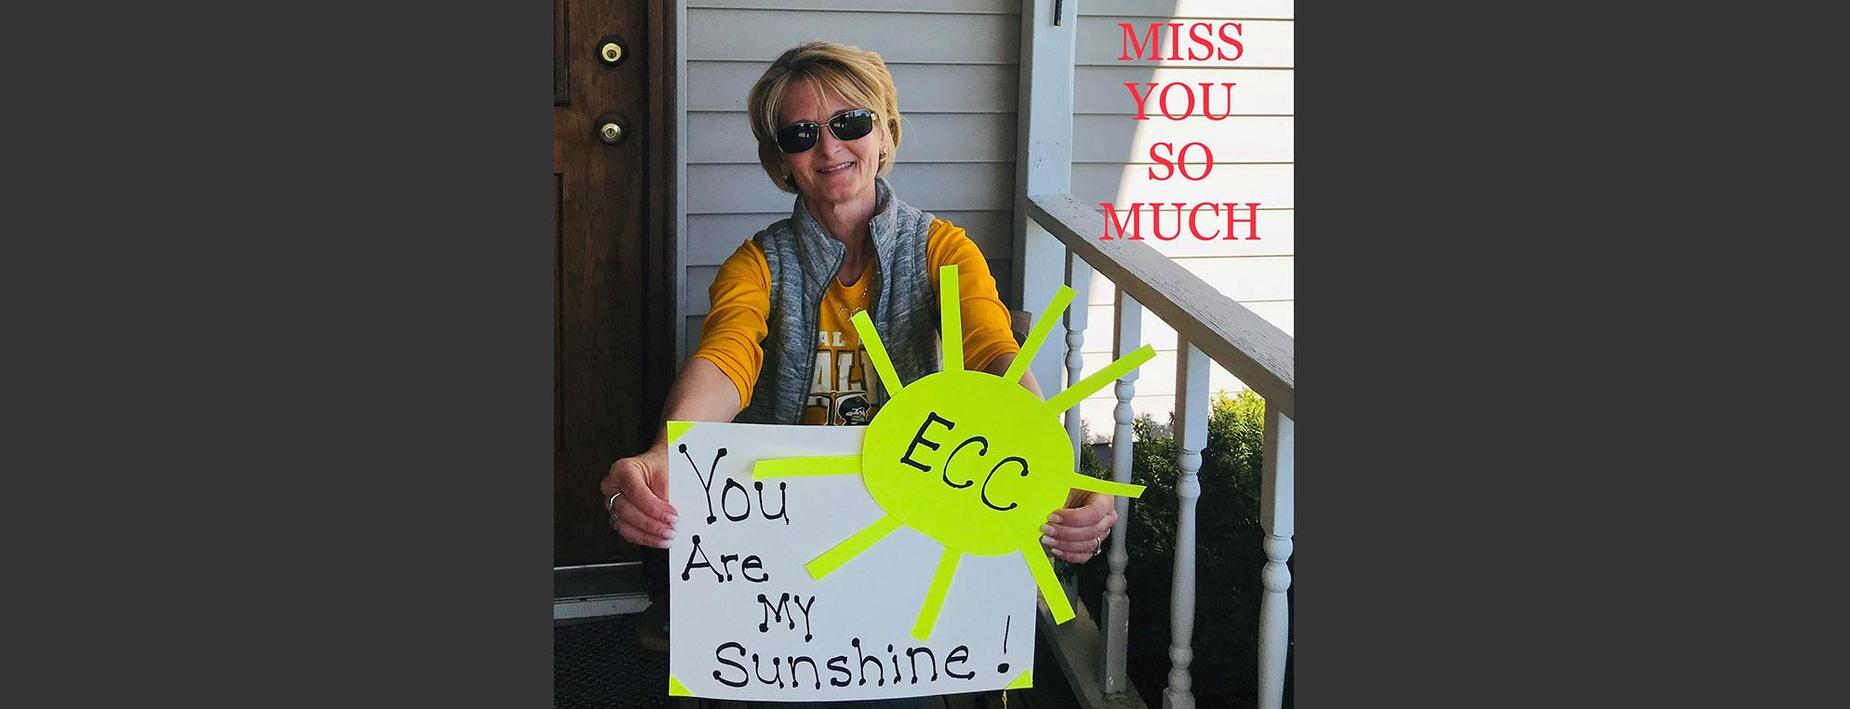 MISS
YOU
SO
MUCH
ECC
You
Are
My
Sunshine!